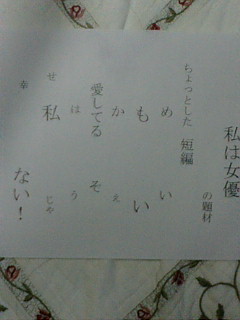 私は女優
の題材
ちょっとした 短編
め い
も い
か え
愛してる そ
は う
せ 私 じゃ
幸 ない！